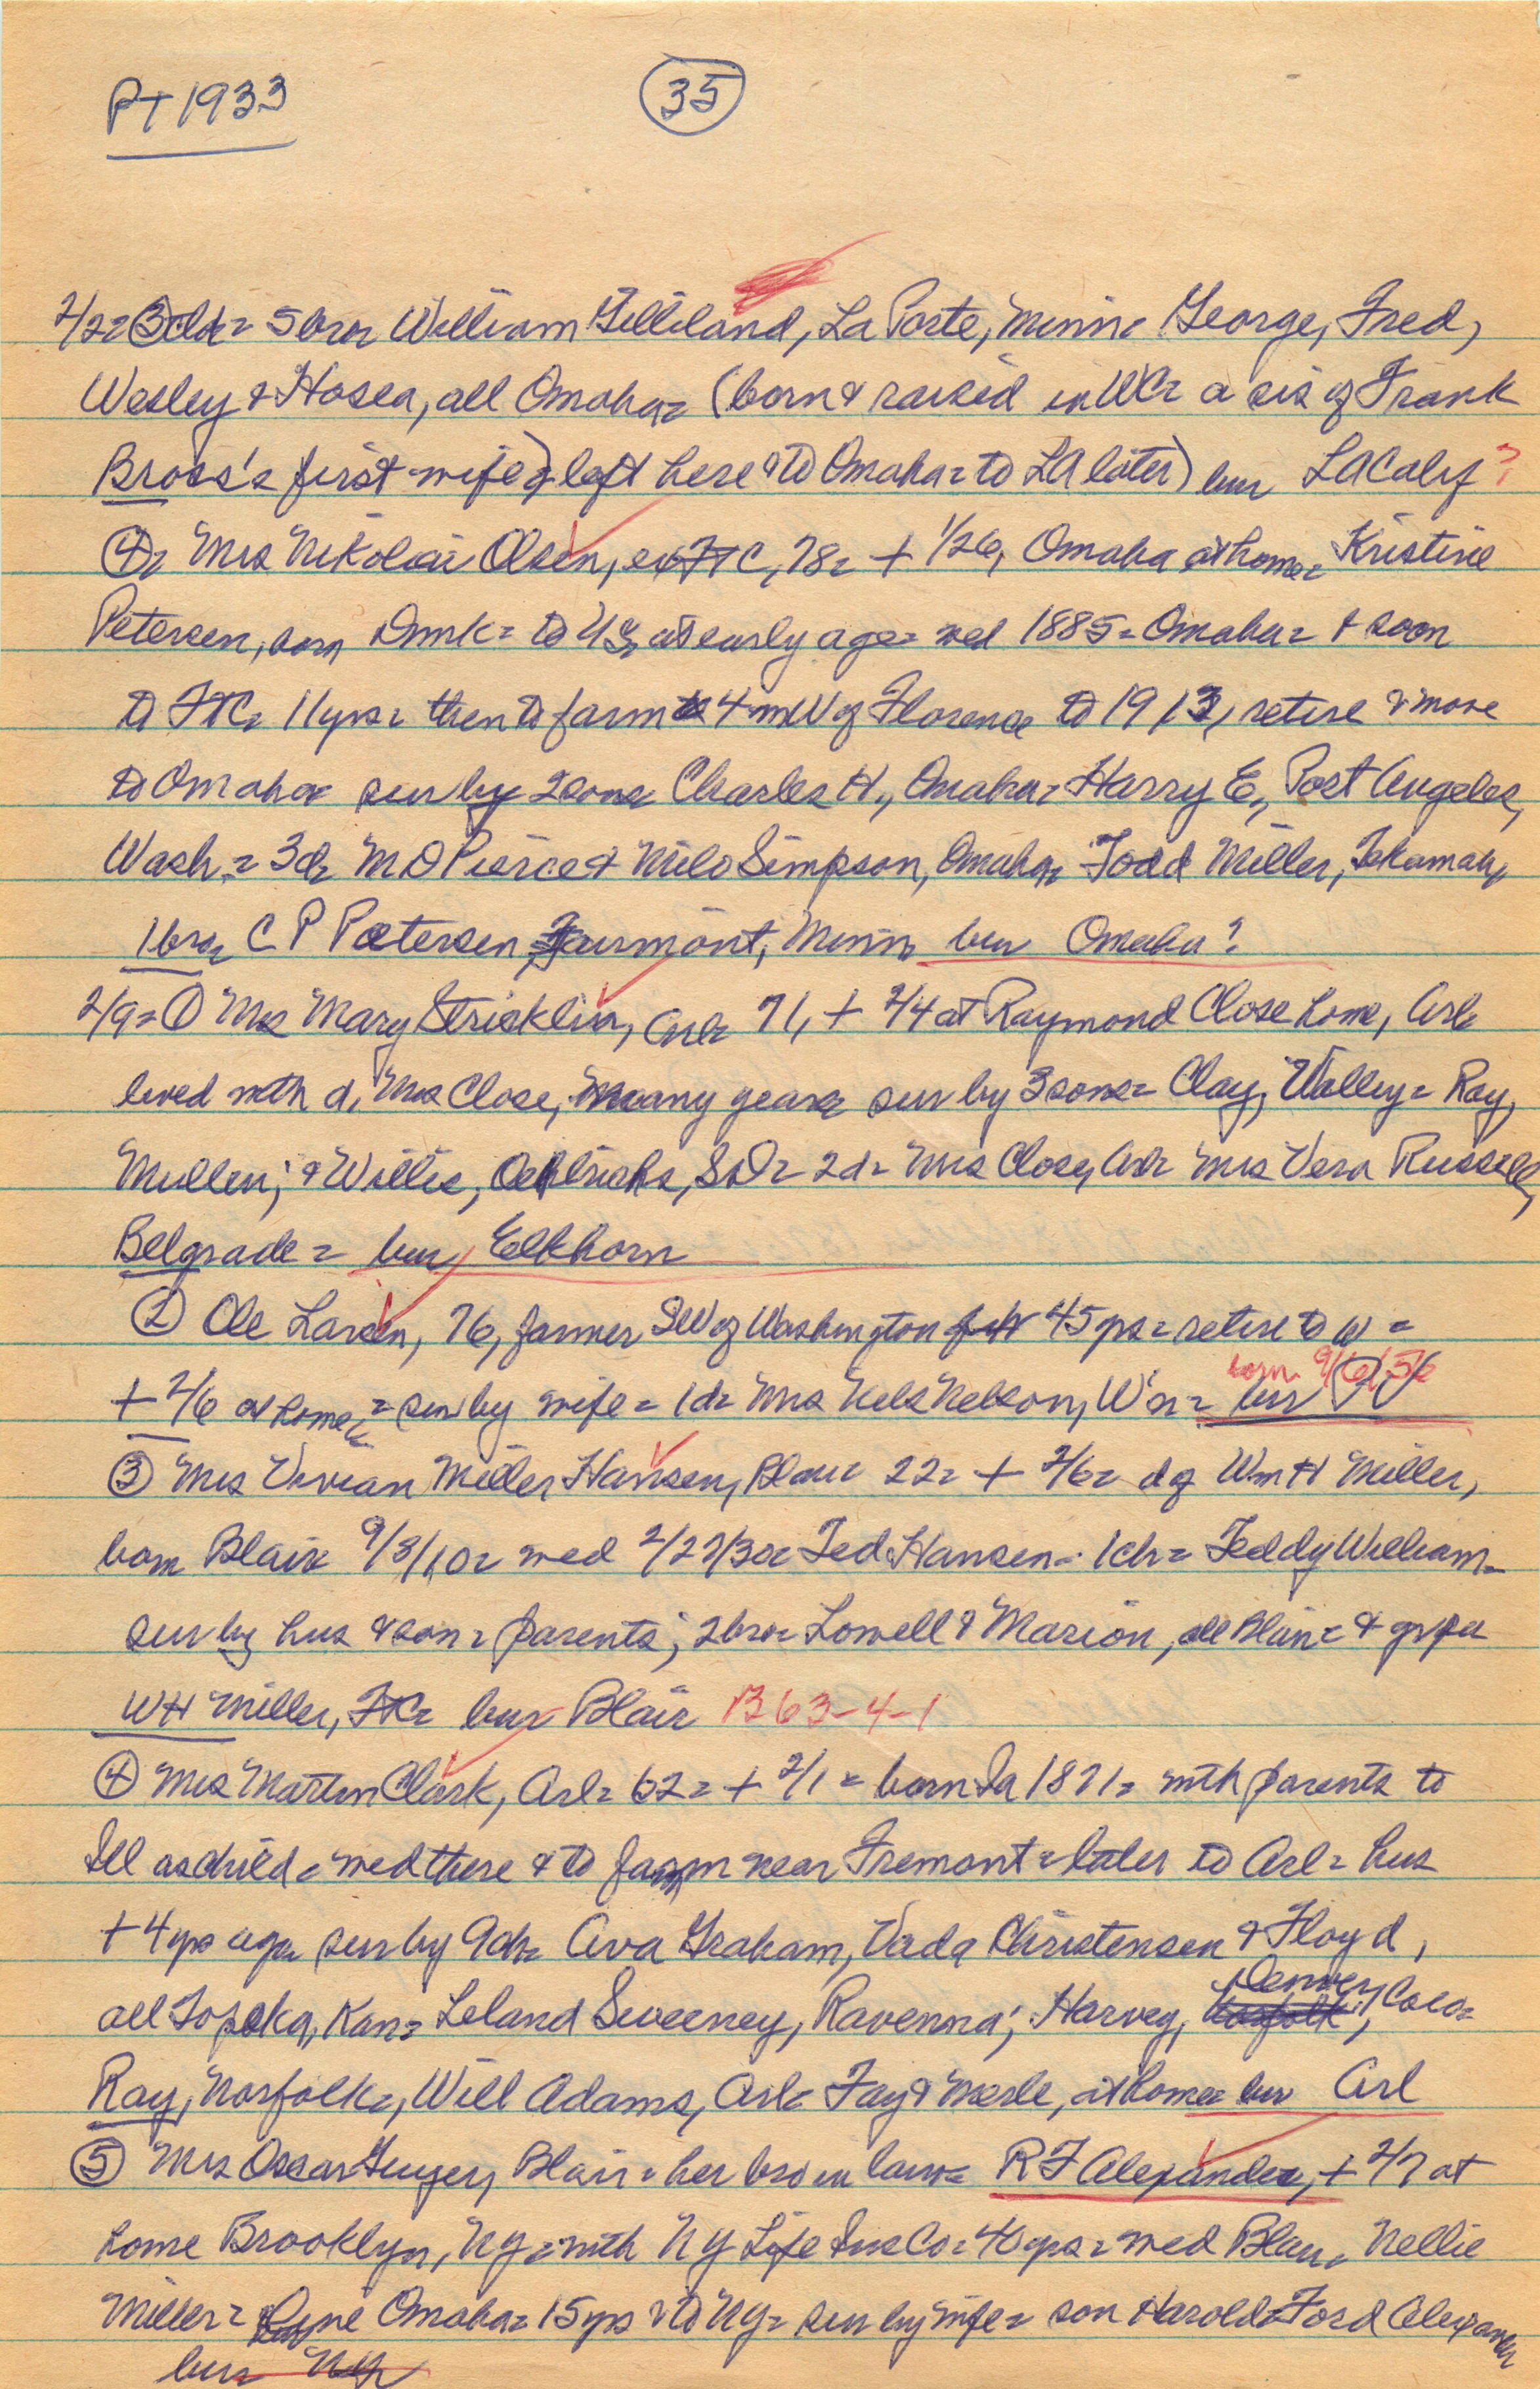 PT 1933
35
2/2= ③ = 5 bro= William Gilliland, La Porte, Minn= George, Fred,
Wesley & Hosea, all Omaha= (born & raised in WC= a sis of Frank
Bross's first wife) left here & to Omaha= to LA later) bur LA Calif ?
④= Mrs Nikolai Olsen, ex FTC, 78= + 1/26, Omaha at home= Kristine
Petersen, born Dnmk= to US at early age= wed 1885= Omaha= & soon
to FTC= 11 yrs= then to farm 4 m W of Florence to 1913, retire & move
to Omaha= sur by 2 sons= Charles H., Omaha= Harry E., Port Angeles,
Wash.= 3d= M D Pierce & Milo Simpson, Omaha= Todd Miller, Tekamah,
1 bro= C P Petersen, Fairmont, Minn= bur Omaha?
2/9= ① Mrs Mary Stricklin, Arl= 71, + 2/4 at Raymond Close home, Arl=
lived with d, Mrs Close, many years= sur by 3 sons= Clay, Valley= Ray,
Mullen; & Willie, Oelrichs, SD= 2d= Mrs Close, Arl= Mrs Vera Russell,
Belgrade= bur Elkhorn
② Ole Larsen, 76, farmer SW of Washington 45 yrs= retire to W=
born 9/6/56
+ 2/6 at home= sur by wife= 1d= Mrs Nels Nelson, W'n= bur
③ Mrs Vivian Miller Hansen, Blair= 22= + 2/6= d of Wm H Miller,
born Blair= 9/8/10= wed 2/27/30= Ted Hansen= 1ch= Teddy William=
sur by hus & son= parents; 2 bro= Lowell & Marion, all Blair= & grpa
WH Miller, FTC= bur Blair B63-4-1
④ Mrs Martin Clark, Arl= 62= + 2/1= born Ia 1871= with parents to
Ill as child= wed there & to farm near Fremont= later to Arl= hus
+ 4 yrs ago= sur by 9ch= Ava Graham, Vada Christensen & Floyd,
all Topeka, Kan= Leland Sweeney, Ravenna; Harvey, Denver, Colo=
Ray, Norfolk=, Will Adams, Arl= Fay & Merle, at home= bur Arl
⑤ Mrs Oscar Guyer, Blair= her bro in law= R F Alexander, + 2/7 at
home Brooklyn, NY= with NY Life Ins Co= 40 yrs= wed Blair= Nellie
Miller= Omaha= 15 yrs & to NY= sur by wife= son Harold Ford Alexander
bur= NY